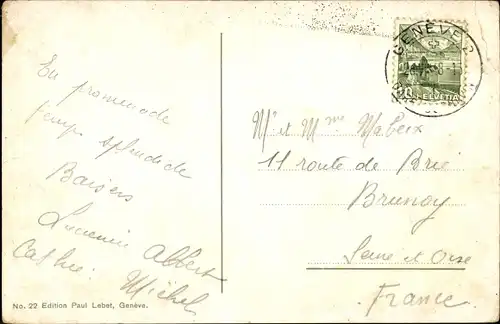 En promenade
temps splendide
Baisers
Lucienne Albert
Cathie. Michel
No. 22 Edition Paul Lebet, Genève.
GENÈVE 2
HELVETIA
Mr et Mme Mabeix
11 route de Brie
Brunoy
Seine et Oise
France.